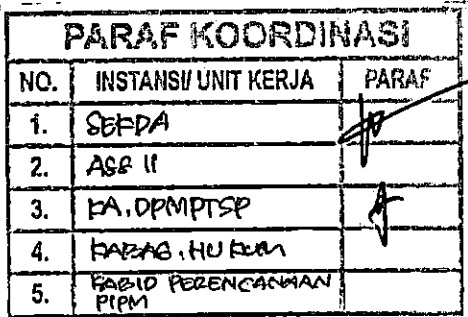 PARAF KOORDINASI
NO. INSTANSI/ UNIT KERJA PARAF
1. SEKDA
2. ASS II
3. KA. DPMPTSP
4. KABAG. HUKUM
5. KABID PERENCANAAN
PIPM